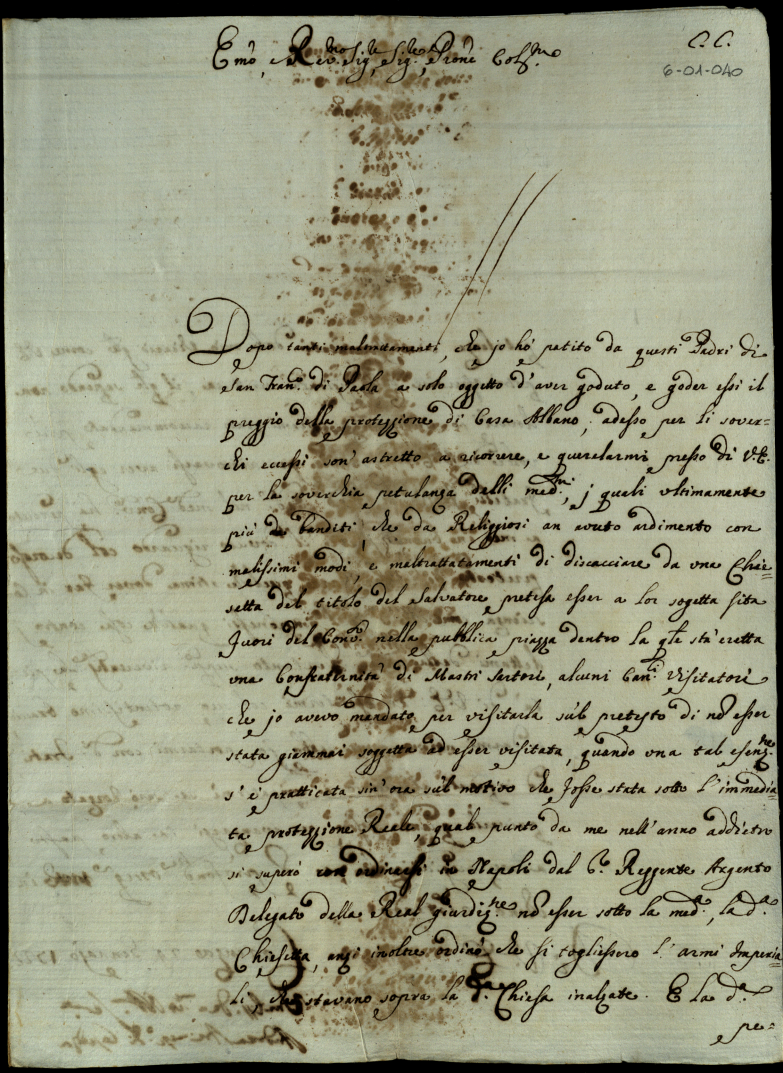 C. C.
6-01-040
Emo, e Rev.mo Sig.re, Sig.re, e Prone Col.mo
Dopo tanti maltrattamenti, che jo hó patito da questi Padri di
San Fran.o di Paola a solo oggetto d'aver goduto, e goder essi il
preggio della protezzione di Casa Albano; adesso per li sover=
chi eccessi son' astretto a ricorrere, e querelarmi presso di V.E.
per la soverchia petulanza delli med.mi, j quali ultimamente
più da banditi, che da Religgiosi an avuto ardimento con
malissimi modi, e maltrattatamenti di discacciare da una Chie=
setta del titolo del Salvatore pretesa esser a lor sogetta sita
fuori del Conv.o nella pubblica piazza dentro la qle stá eretta
una Confraternitá di Mastri Sartori, alcuni Can.ci Visitatori
che jo avevo mandato per visitarla sul pretesto di nō esser
stata giammai soggetta ad esser visitata, quando una tal esenz.ne
s' é pratticata sin' ora sul motivo che fosse stata sotto l'immedia=
ta protezzione Reale, qual punto da me nell' anno addietro
si superó con ordinarsi in Napoli dal Reggente Argento
Delegato della Real giurdiz.ne nō esser sotto la med.a, la d.a
Chiesetta, anzi inoltre ordinó che si togliessero l' armi Imperia=
li, che stavano sopra la d.a Chiesa inalzate. E la d.a
pe=